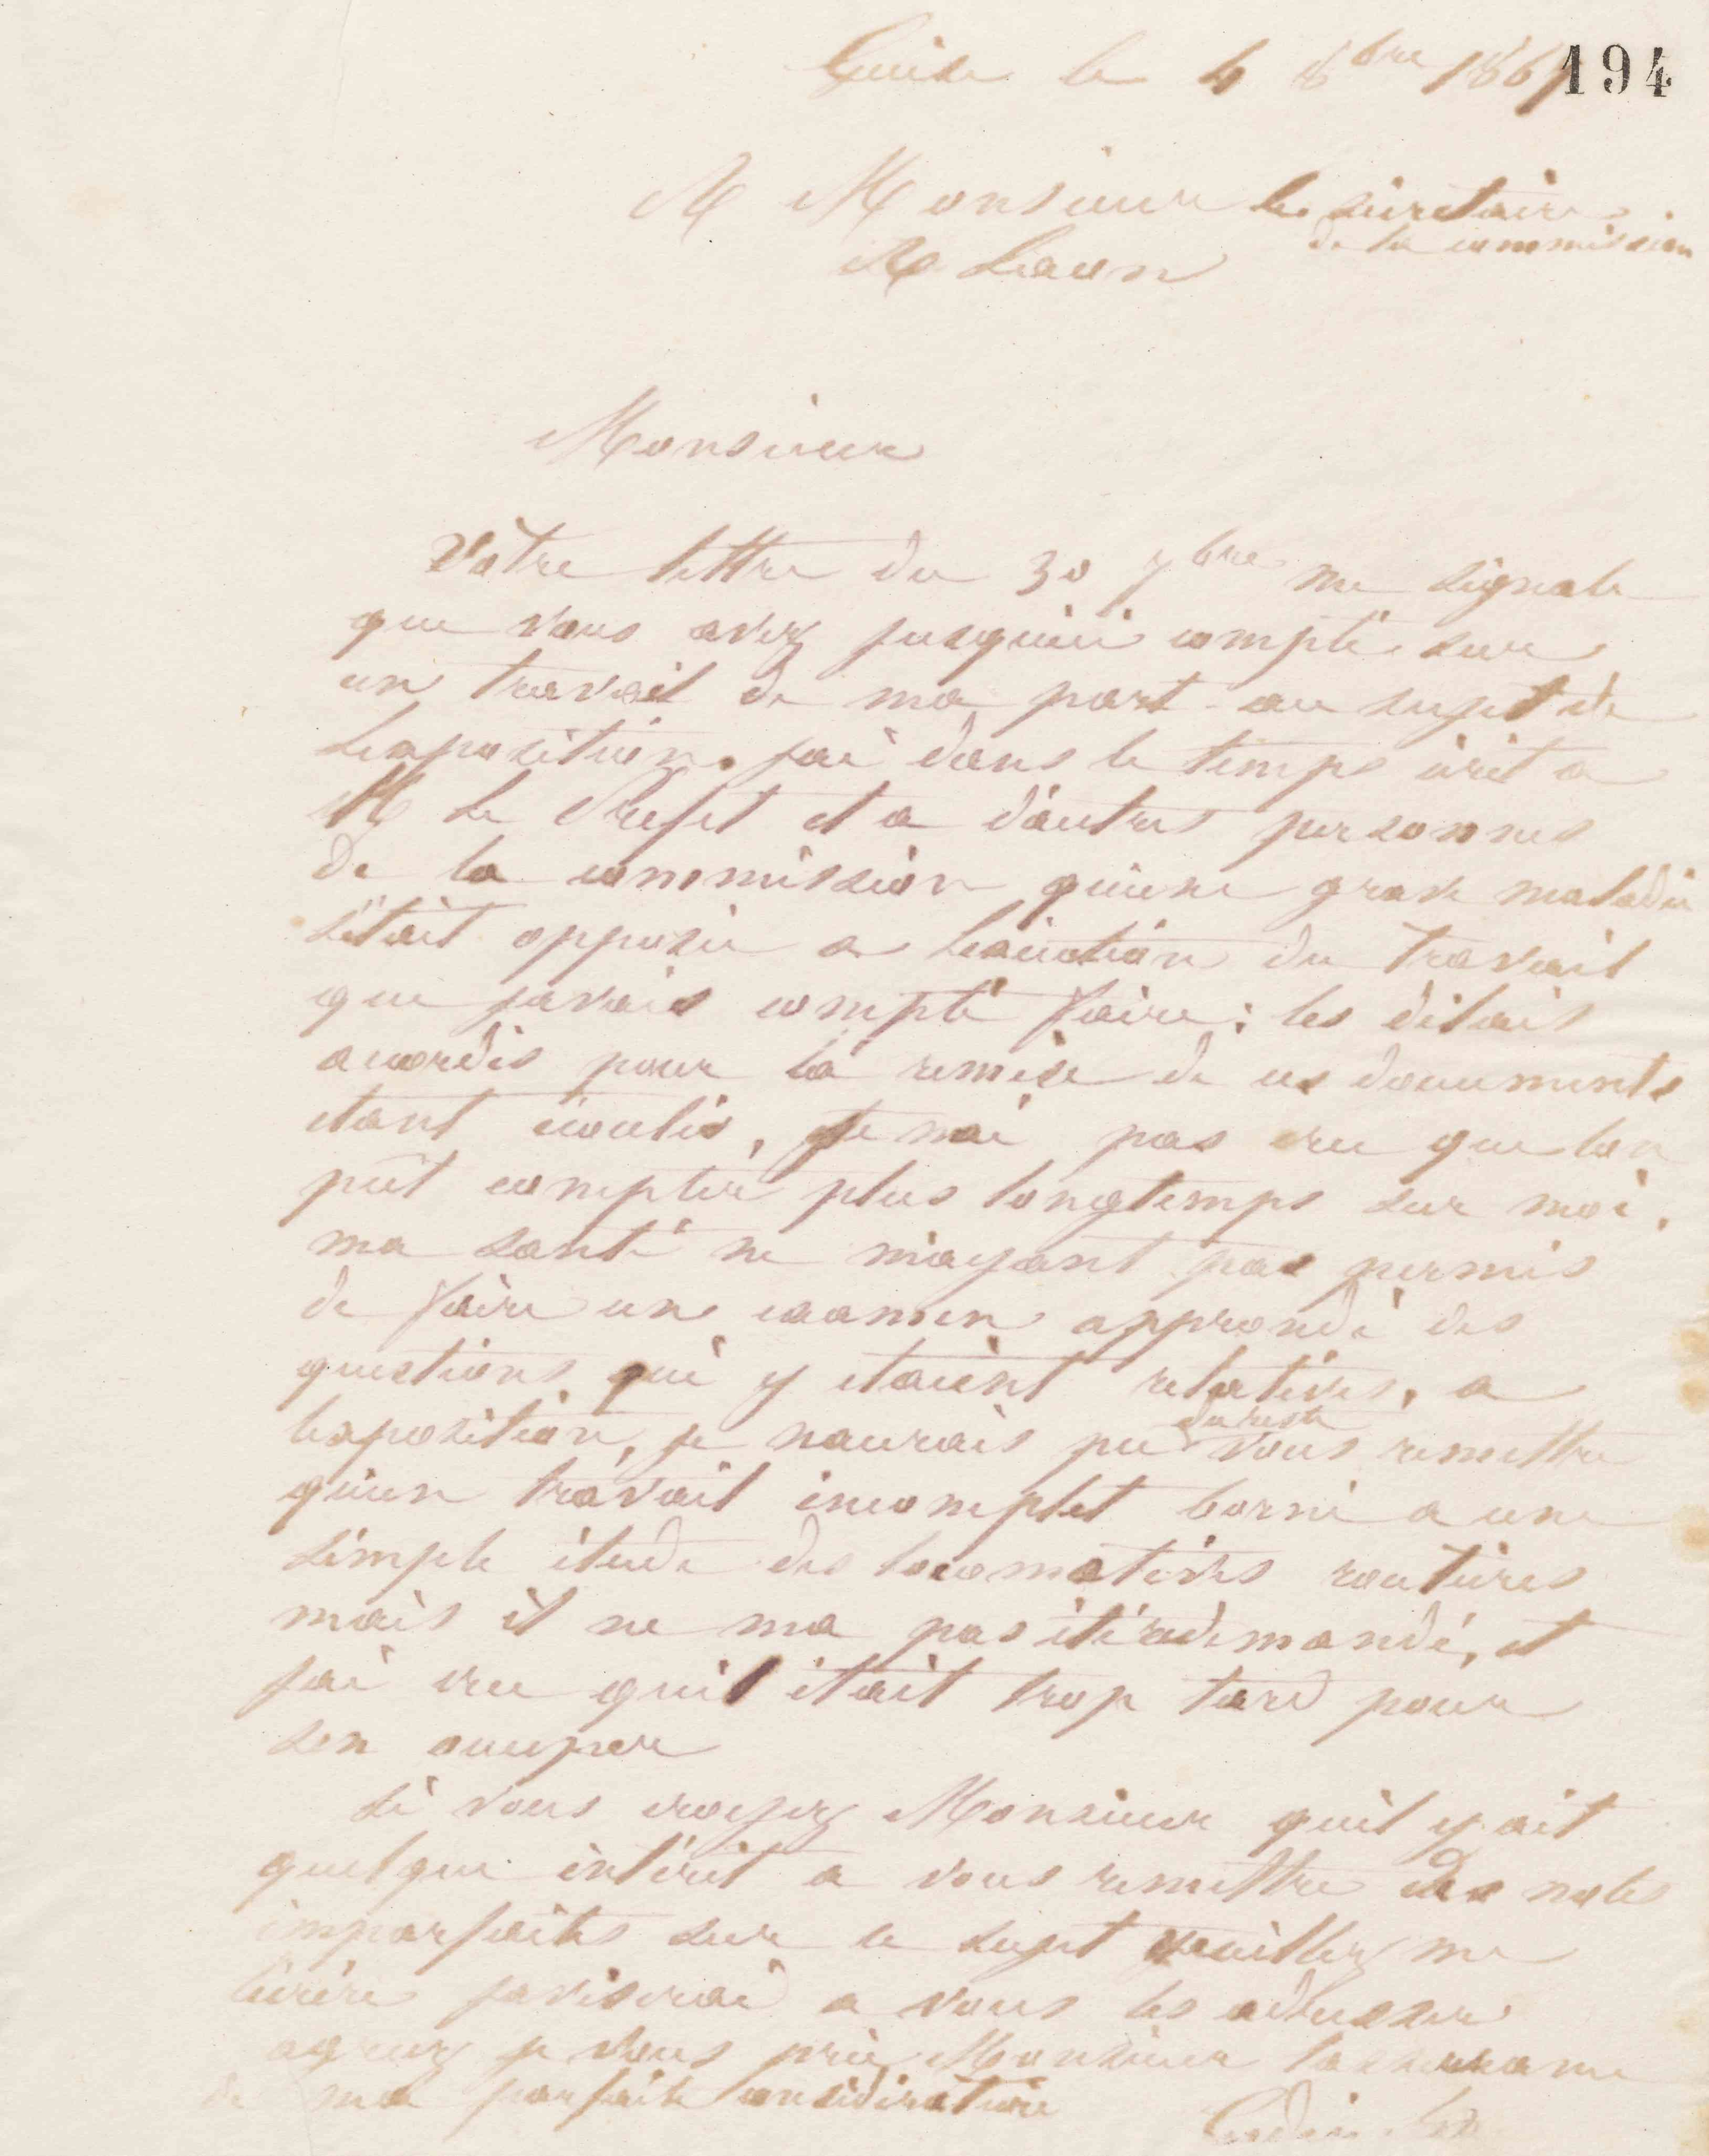 Guise le 4 8bre 1867
194
A Monsieur le secretaire
de la commission
A Laon
Monsieur
Votre lettre du 30 7bre me signale
que vous avez jusquici compté sur
un travail de ma part au sujet de
lexposition. jai dans le temps écrit a
M le Prefet et a dautres personnes
de la commission quune grave maladie
sétait opposée a lexécution du travail
que javais compté faire ; les délais
accordés pour la remise de ces documents
etant écoulés, je nai pas cru que lon
put compter plus longtemps sur moi.
ma santé ne mayant pas permis
de faire un examen approndi des
questions qui y etaient relatives, a
lexposition, je naurais pu du reste vous remettre
quun travail incomplet borné a une
simple étude des locomotives routières
mais il ne ma pas été redemandé, et
jai cru quil était trop tard pour
sen occuper
Si vous croyez Monsieur quil y ait
quelque intérêt a vous remettre des notes
imparfaites sur ce sujet veuillez me
lécrire javiserai a vous les adresser
agreez je vous prie Monsieur lassurance
de ma parfaite considération
Godin